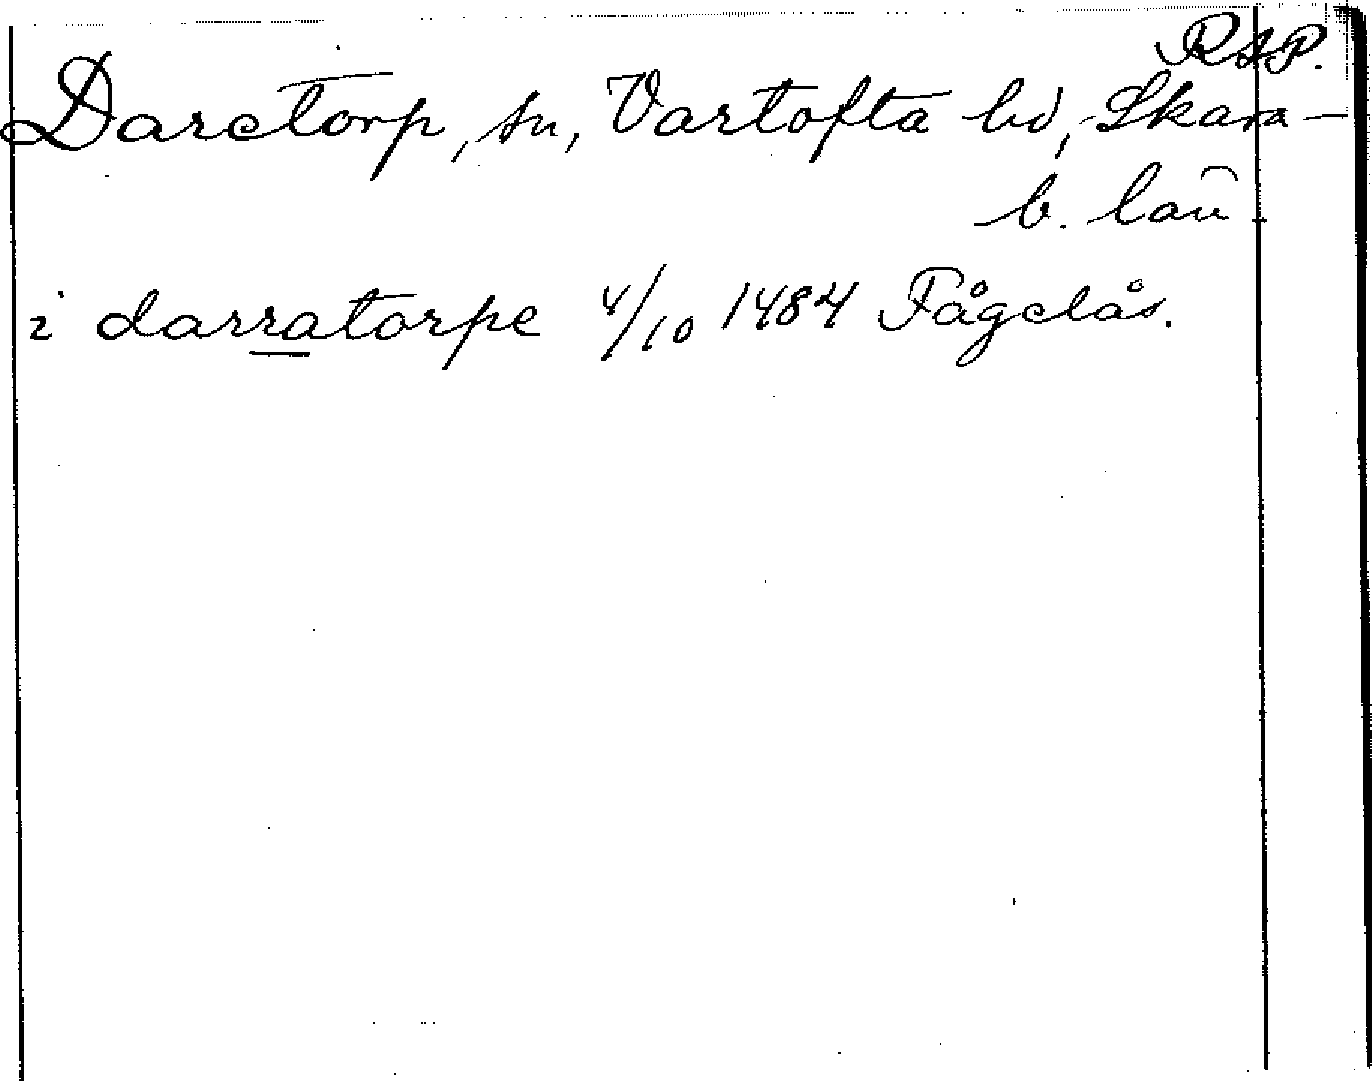 RAP.
Daretorp, sn, Vartofta hd, Skara-
b. län
i darratorpe 4/10 1484 Fågelås.